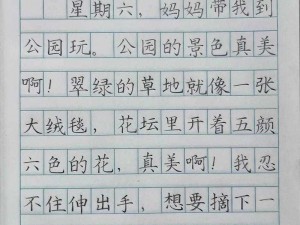 星期六，妈妈带我到
公园玩。公园的景色真美
啊！翠绿的草地就像一张
大绒毯，花坛里开着五颜
六色的花，真美啊！我忍
不住伸出手，想要摘下一